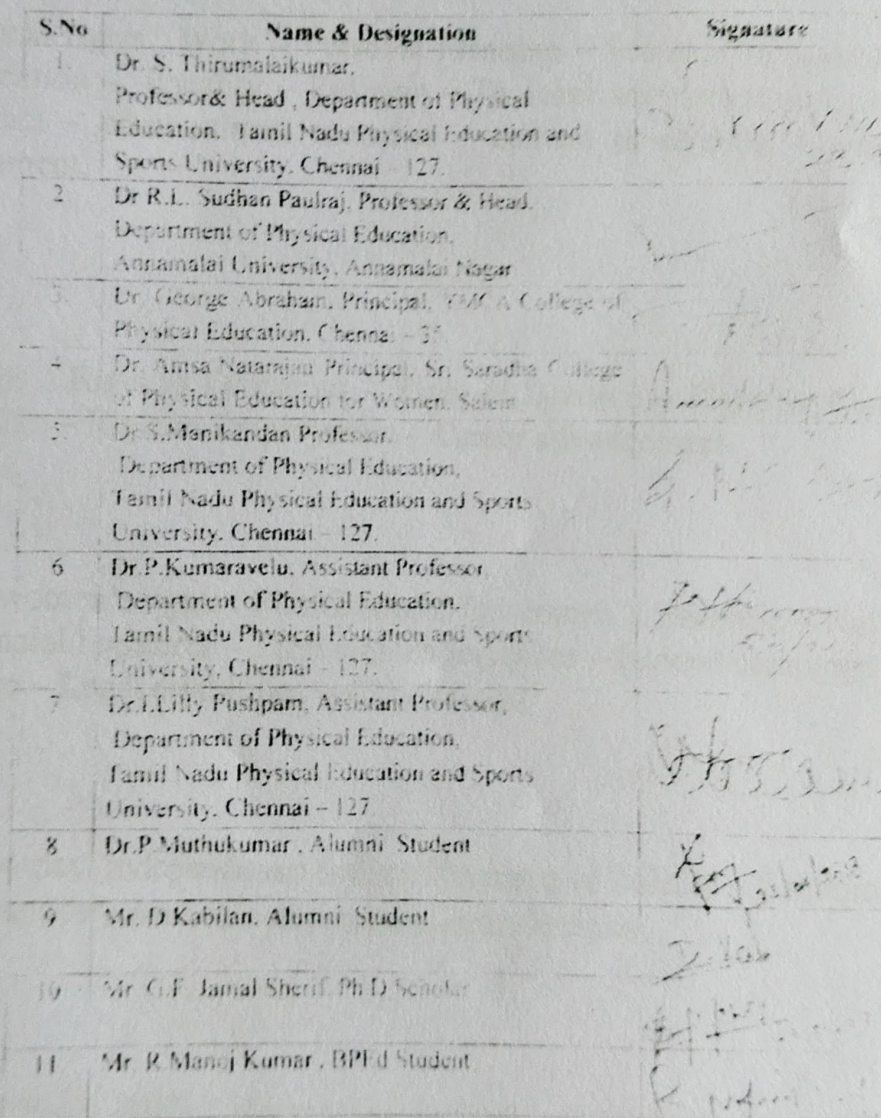 S.No Name & Designation Signature
1. Dr. S. Thirumalaikumar,
Professor& Head , Department of Physical
Education, Tamil Nadu Physical Education and
Sports University, Chennai – 127.
2 Dr R.L. Sudhan Paulraj, Professor & Head,
Department of Physical Education,
Annamalai University, Annamalai Nagar
3. Dr. George Abraham, Principal, YMCA College of
Physical Education, Chennai – 35
4 Dr. Amsa Natarajan Principal, Sri Saradha College
of Physical Education for Women, Salem
5. Dr S.Manikandan Professor,
Department of Physical Education,
Tamil Nadu Physical Education and Sports
University, Chennai – 127.
6 Dr.P.Kumaravelu, Assistant Professor,
Department of Physical Education,
Tamil Nadu Physical Education and Sports
University, Chennai – 127.
7 Lilly Pushpam, Assistant Professor,
Department of Physical Education,
Tamil Nadu Physical Education and Sports
University, Chennai – 127
8 Dr.P.Muthukumar , Alumni Student
9 Mr. D Kabilan, Alumni Student
10 Mr Jamal Sherif, Ph.D Scholar
11 Mr R.Manoj Kumar , BPEd Student